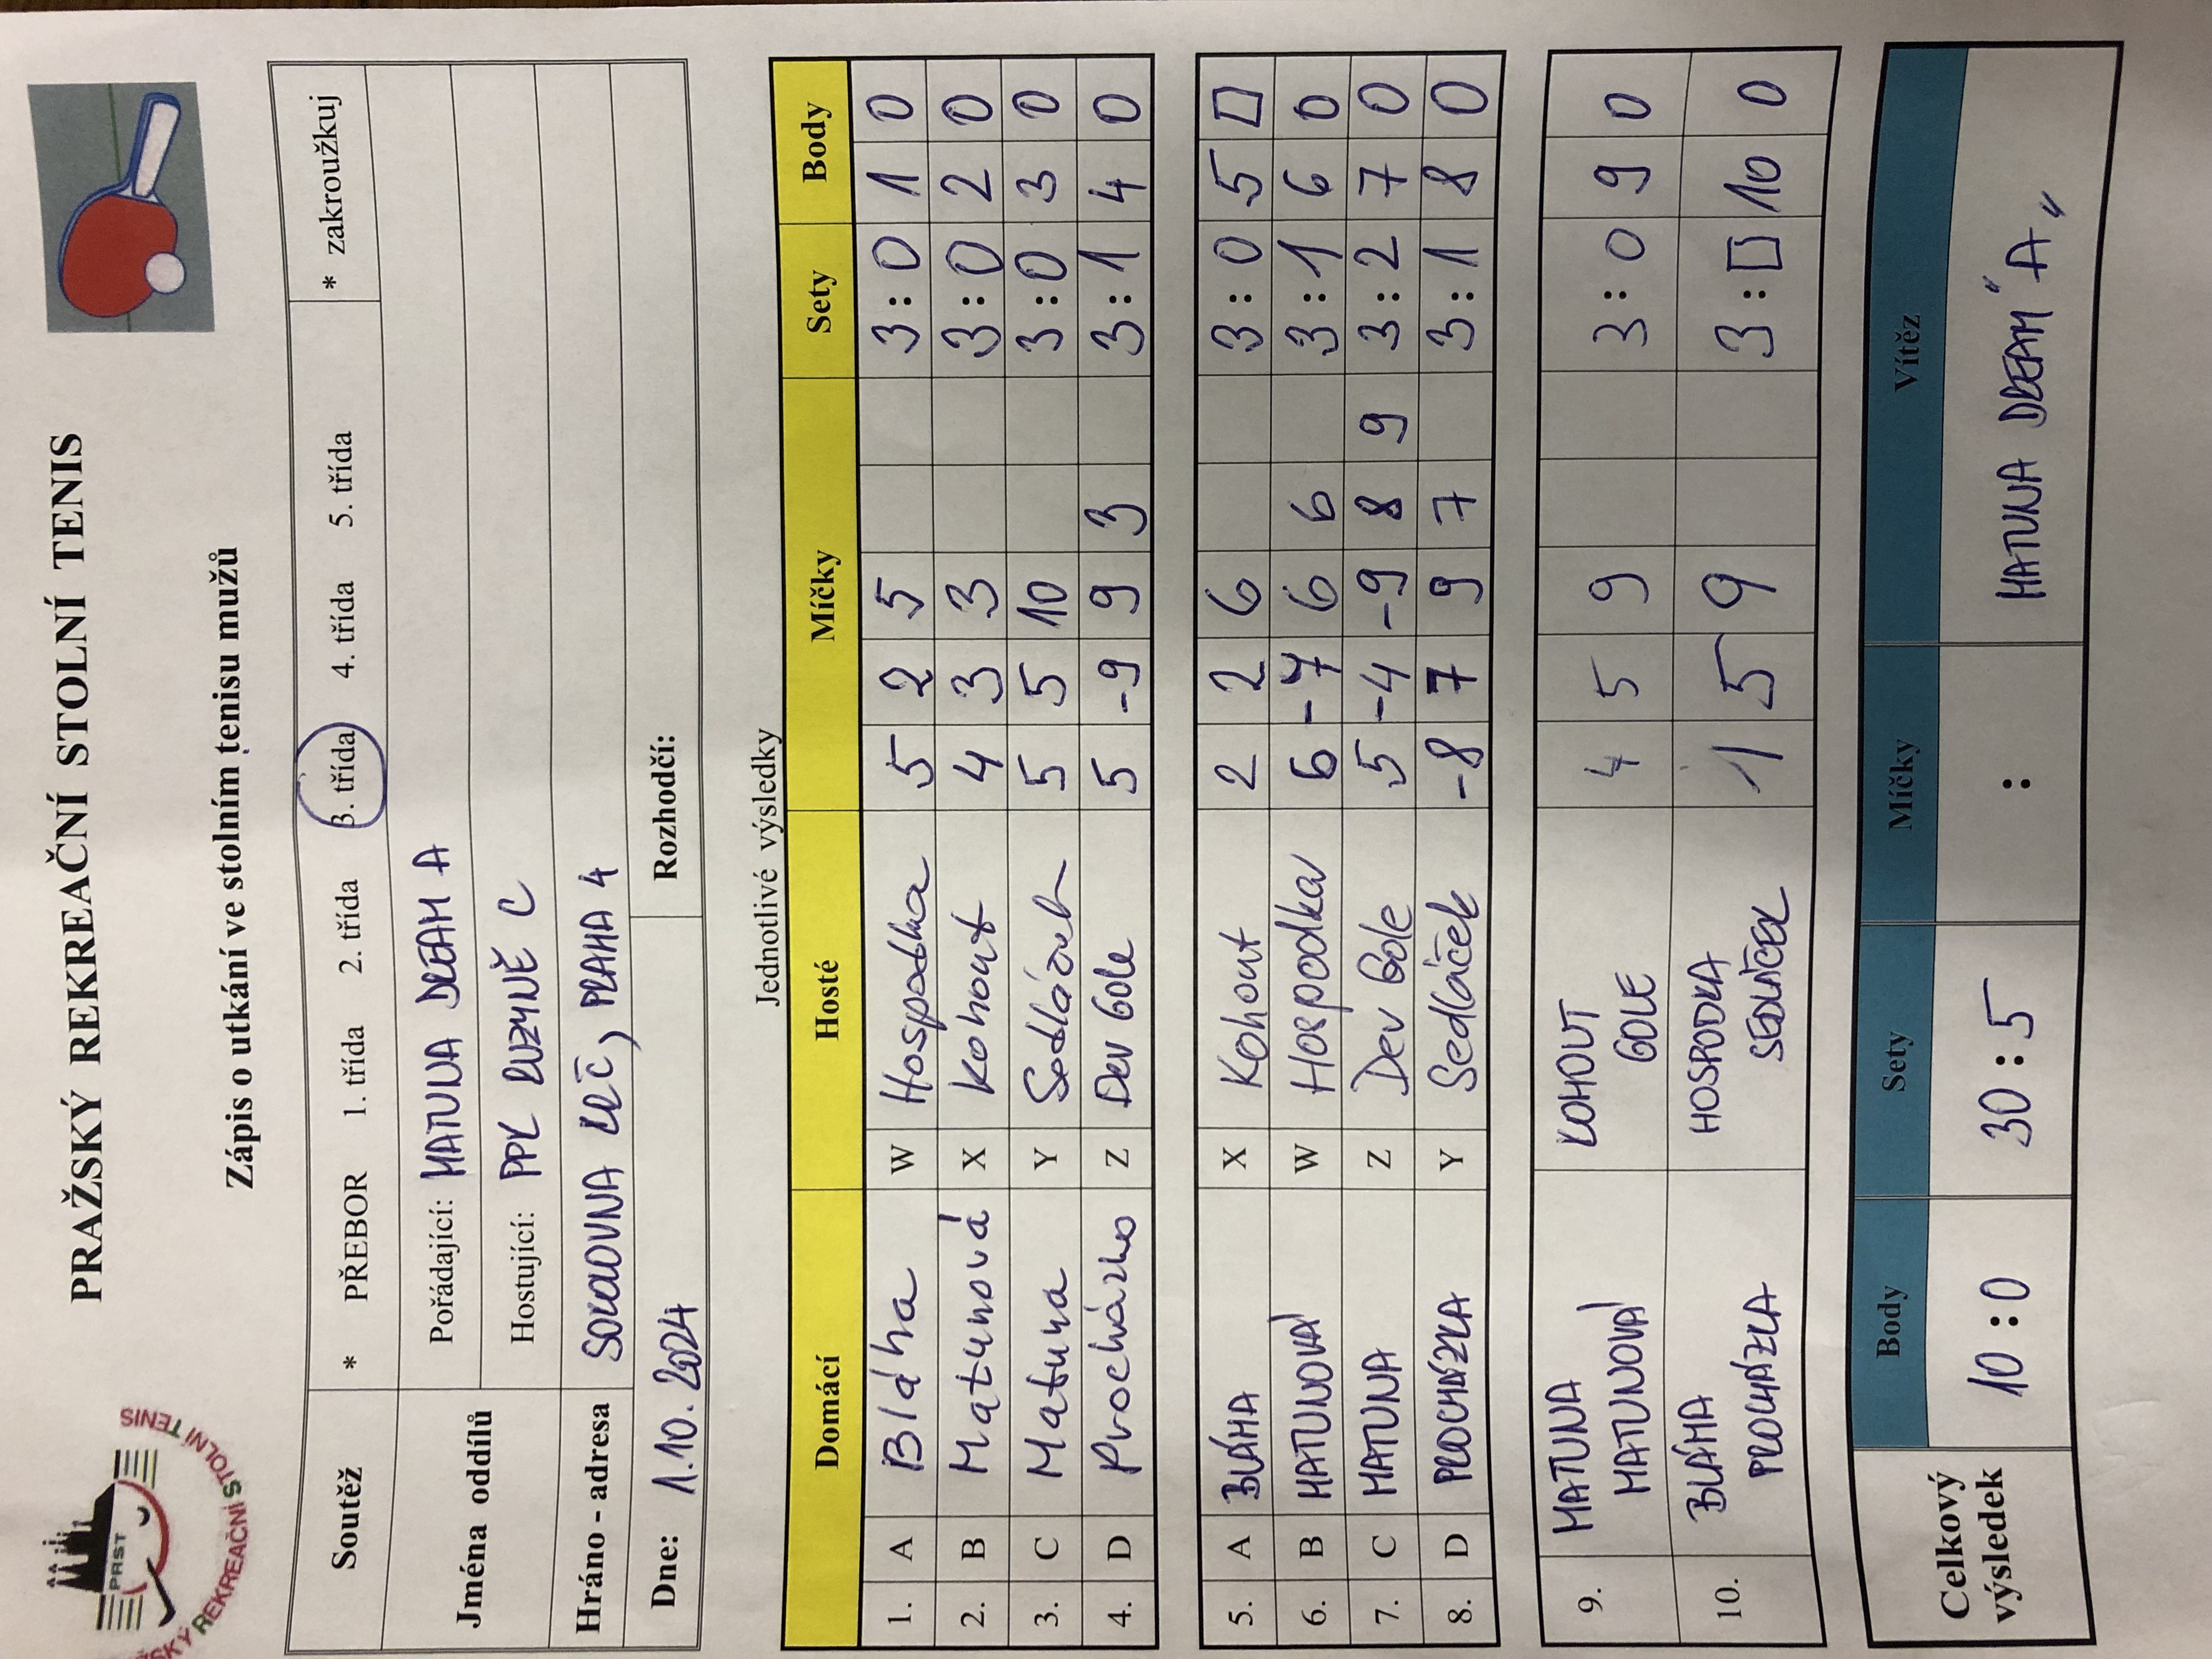 PRAŽSKÝ REKREAČNÍ STOLNÍ TENIS
PRST
REKREAČNÍ STOLNÍ TENIS
Zápis o utkání ve stolním tenisu mužů
Soutěž * PŘEBOR 1. třída 2. třída 3. třída 4. třída 5. třída * zakroužkuj
Jména oddílů Pořádající: MATUNA DREAM A
Hostující: PPK RUZYNĚ C
Hráno - adresa SOKOLOVNA KRČ, PRAHA 4
Dne: 1.10.2024 Rozhodčí:
Jednotlivé výsledky
Domácí Hosté Míčky Sety Body
1. A Bláha W Hospodka 5 2 5 3:0 1 0
2. B Matunová X Kohout 4 3 3 3:0 2 0
3. C Matuna Y Sedláček 5 5 10 3:0 3 0
4. D Procházka Z Dev Gole 5 -9 9 3 3:1 4 0
5. A BLÁHA X Kohout 2 2 6 3:0 5 0
6. B MATUNOVÁ W Hospodka 6 -7 6 6 3:1 6 0
7. C MATUNA Z Dev Gole 5 -4 -9 8 9 3:2 7 0
8. D PROCHÁZKA Y Sedláček -8 7 9 7 3:1 8 0
9. MATUNA MATUNOVÁ KOHOUT GOLE 4 5 9 3:0 9 0
10. BLÁHA PROCHÁZKA HOSPODKA SEDLÁČEK 1 5 9 3:0 10 0
Celkový výsledek Body Sety Míčky Vítěz
10:0 30:5 : MATUNA DREAM "A"